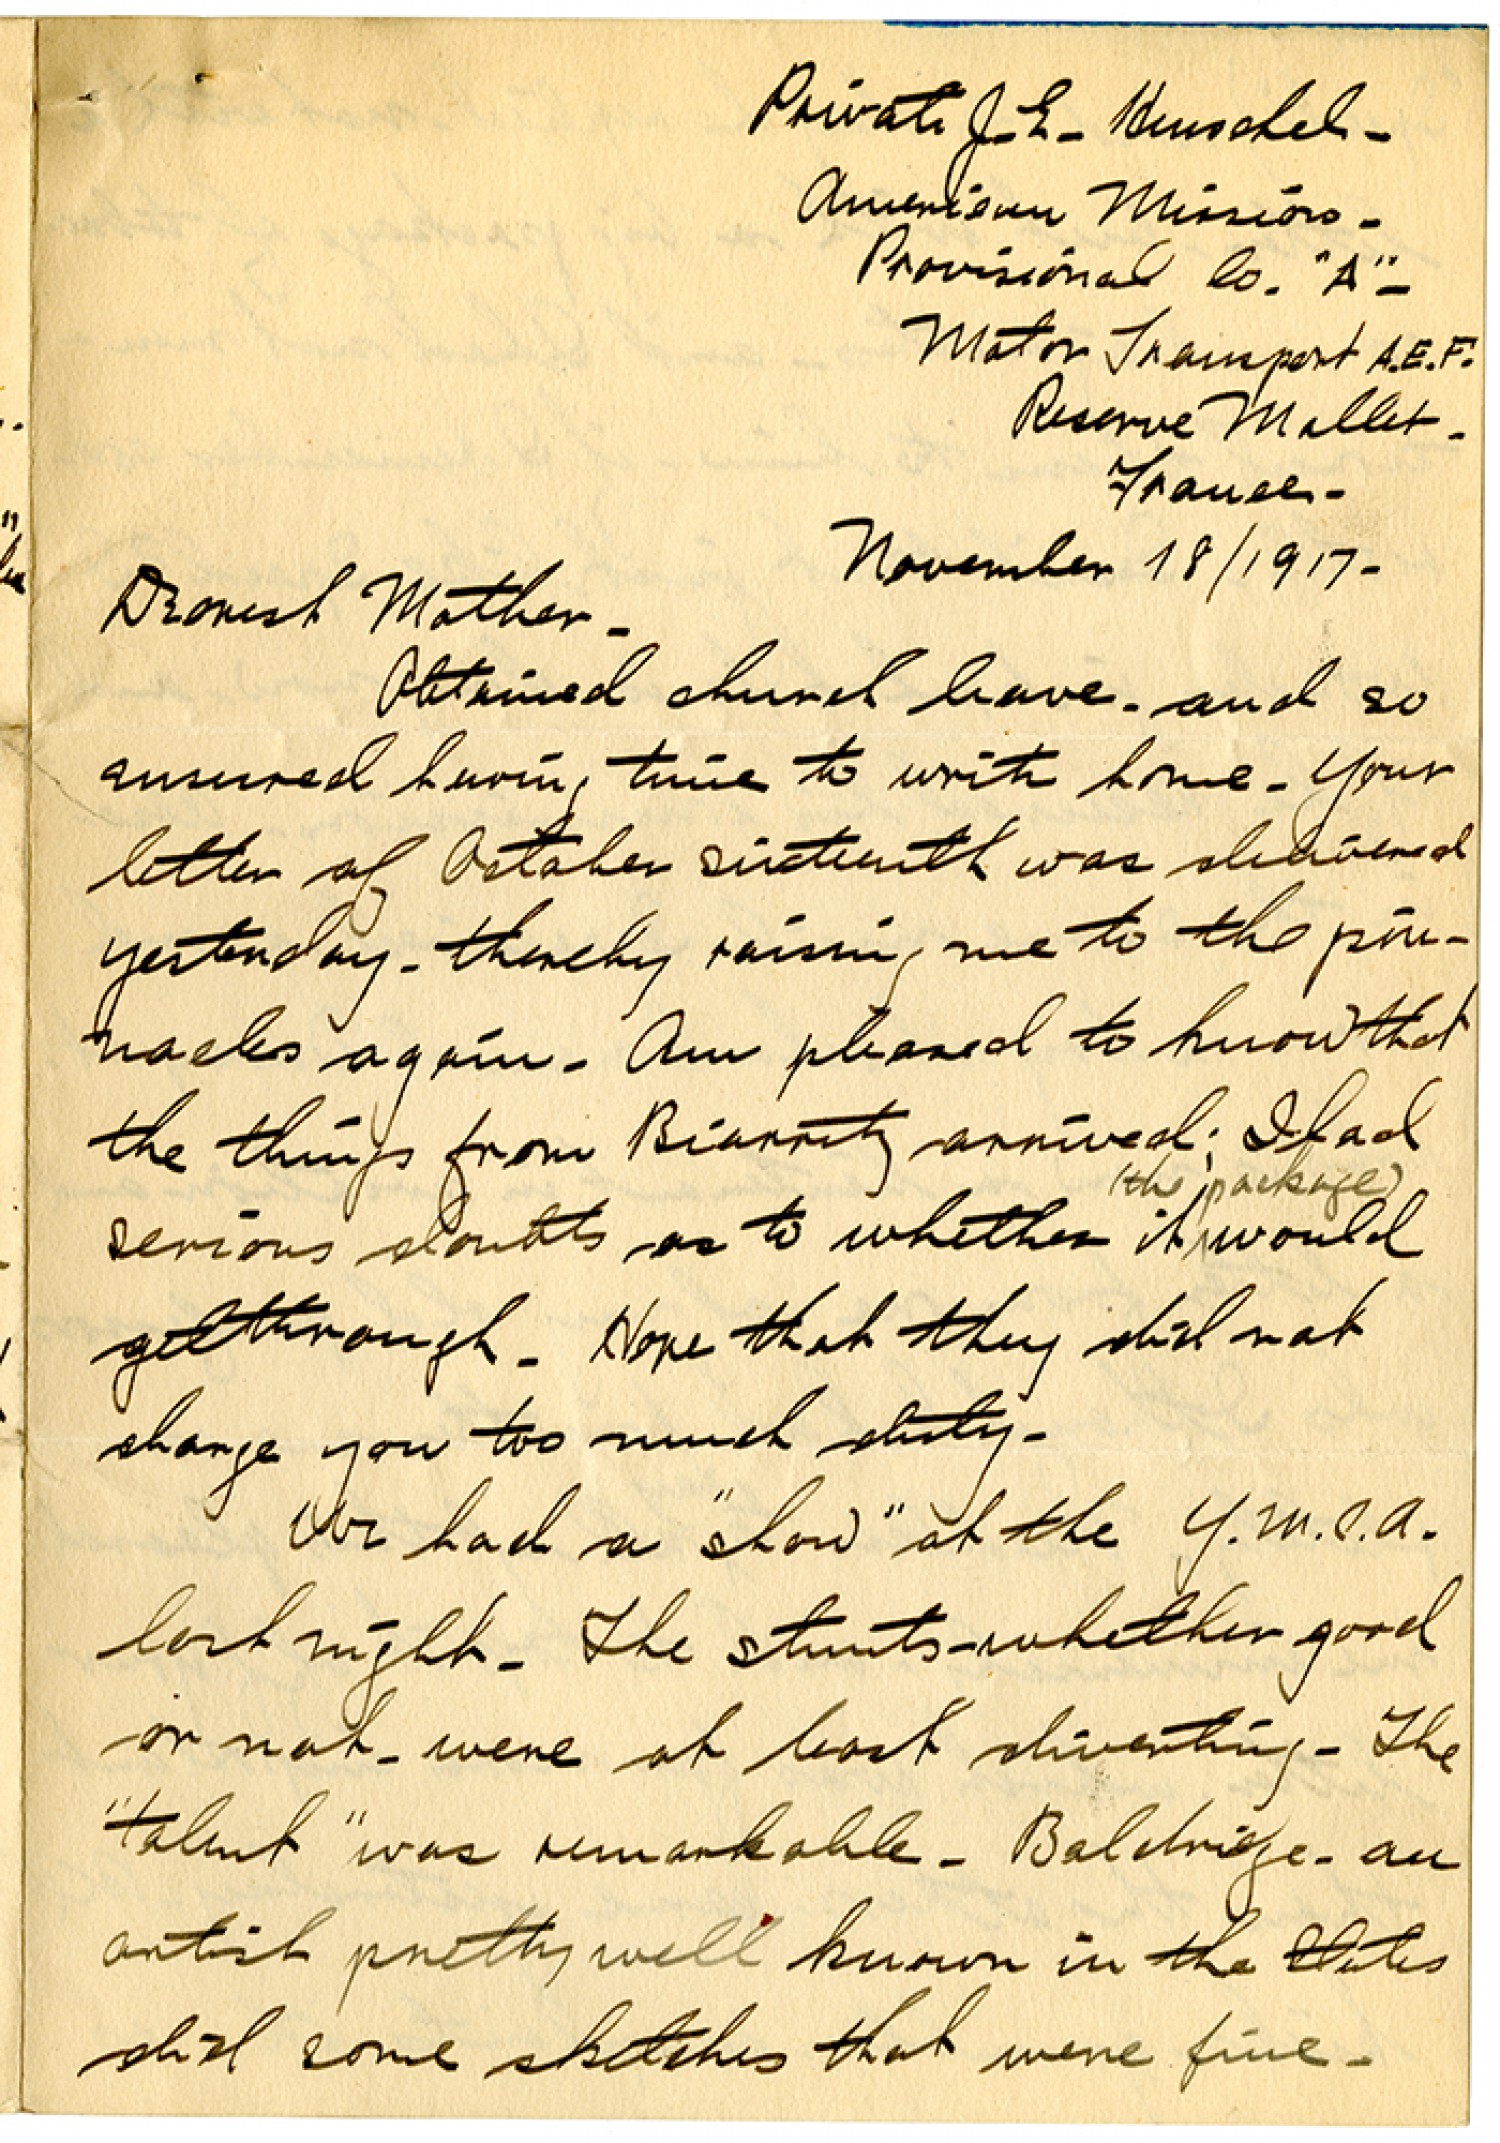 Private J.E. Henschel-
American Mission-
Provisional Co. "A"-
Motor Transport A.E.F.
Reserve Mallet-
France-
November 18/1917-
Dearest Mother-
Obtained church leave- and so
ensured having time to write home- Your
letter of October sixteenth was delivered
yesterday- thereby raising me to the pin-
nacles again- Am pleased to know that
the things from Biarritz arrived; I had
(the package)
serious doubts as to whether it would
get through- Hope that they did not
charge you too much duty-
We had a "show" at the Y.M.C.A.
last night- The stunts-whether good
or not- were at least diverting- The
"talent" was remarkable- Baldridge- an
artist pretty well known in the States
did some sketches that were fine-